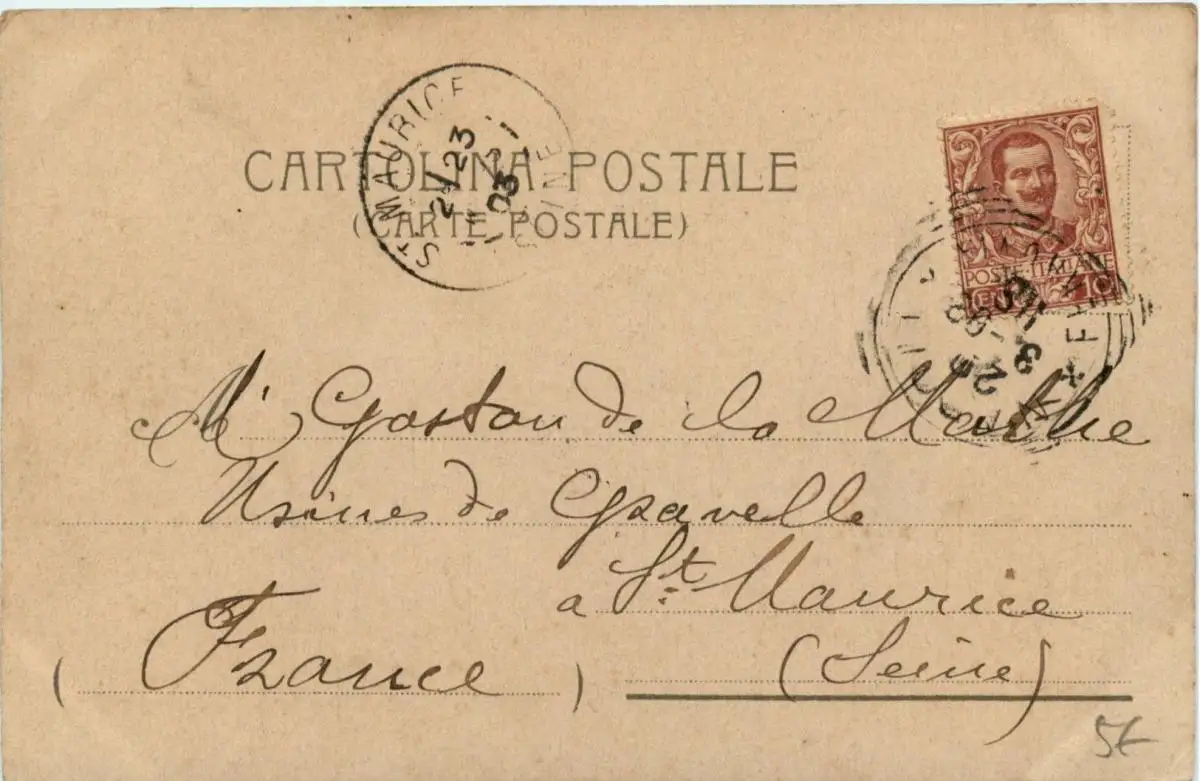 CARTOLINA POSTALE
(CARTE POSTALE)
ST MAURICE
23
03
SEINE
POSTE ITALIANE
CENT. 10
FERROVIA
M. Gaston de la Mathe
Usines de Gravelle
a St. Maurice
(Seine)
(France)
5€